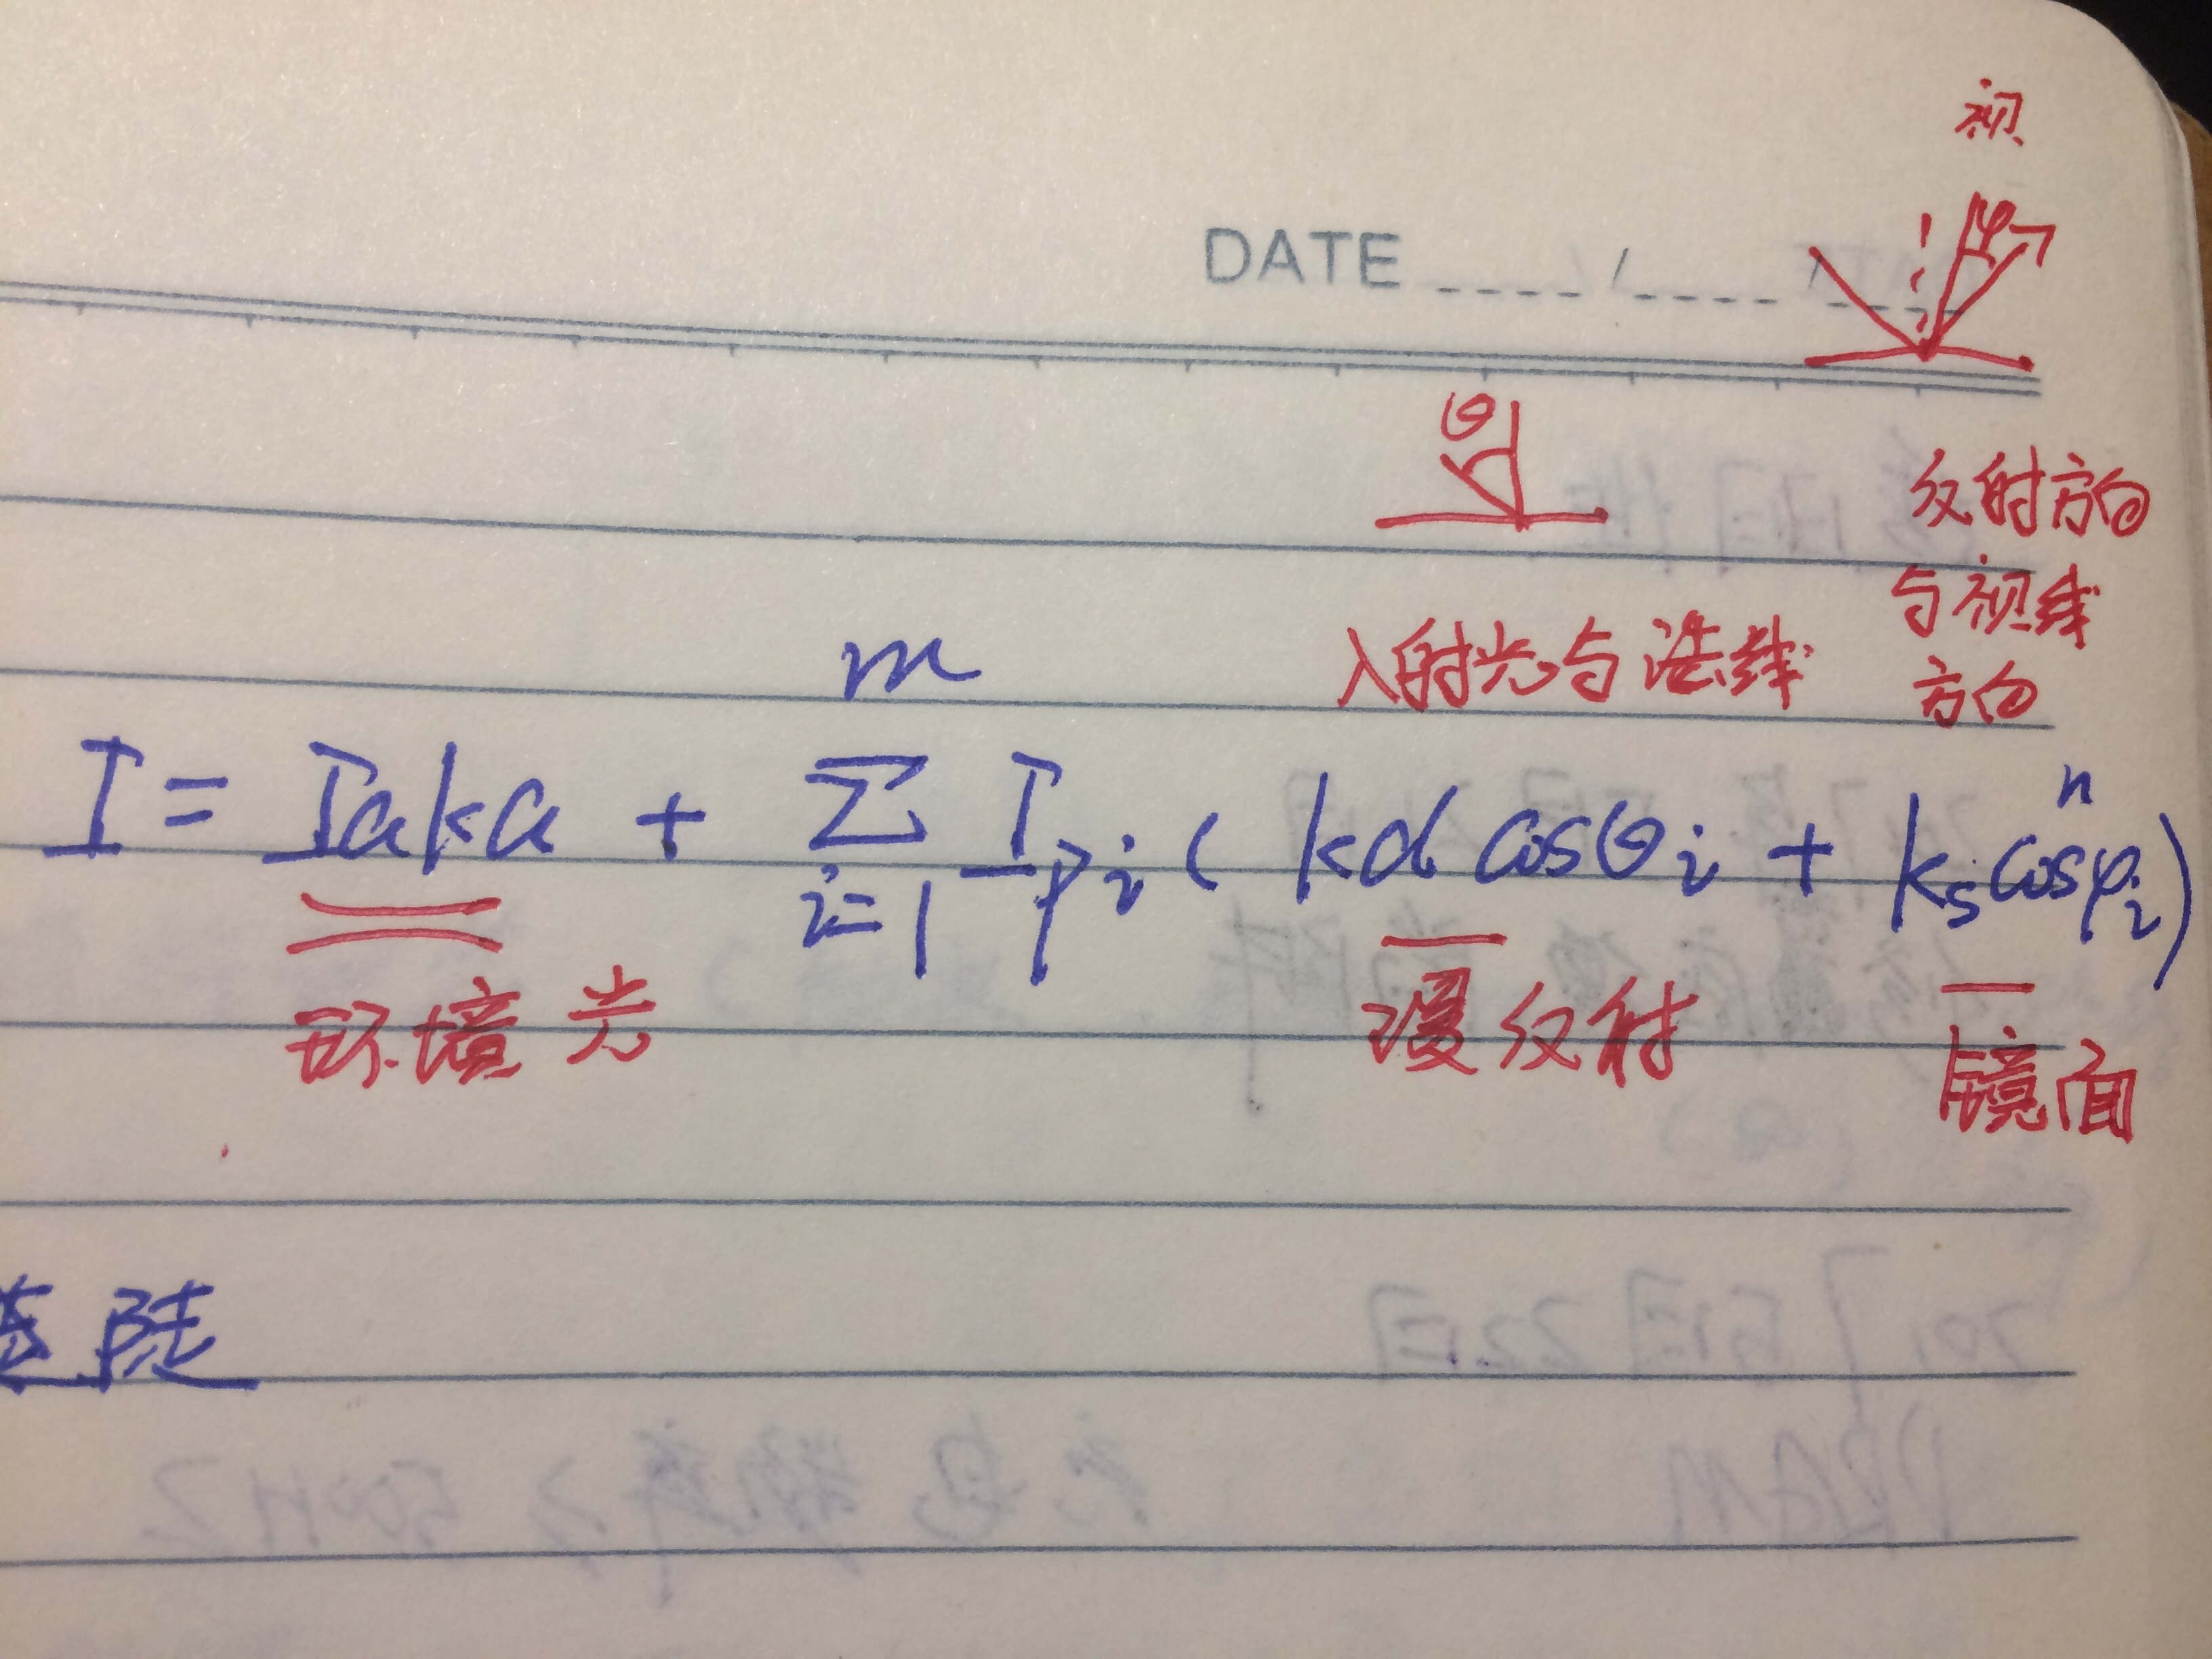 视
DATE ____/____/____
φ
θ
反射方向
与视线
方向
入射光与法线
m
I = Iaka + Σ Ipi ( kd cosθi + ks cosⁿφi )
i=1
环境光
漫反射
镜面
陡